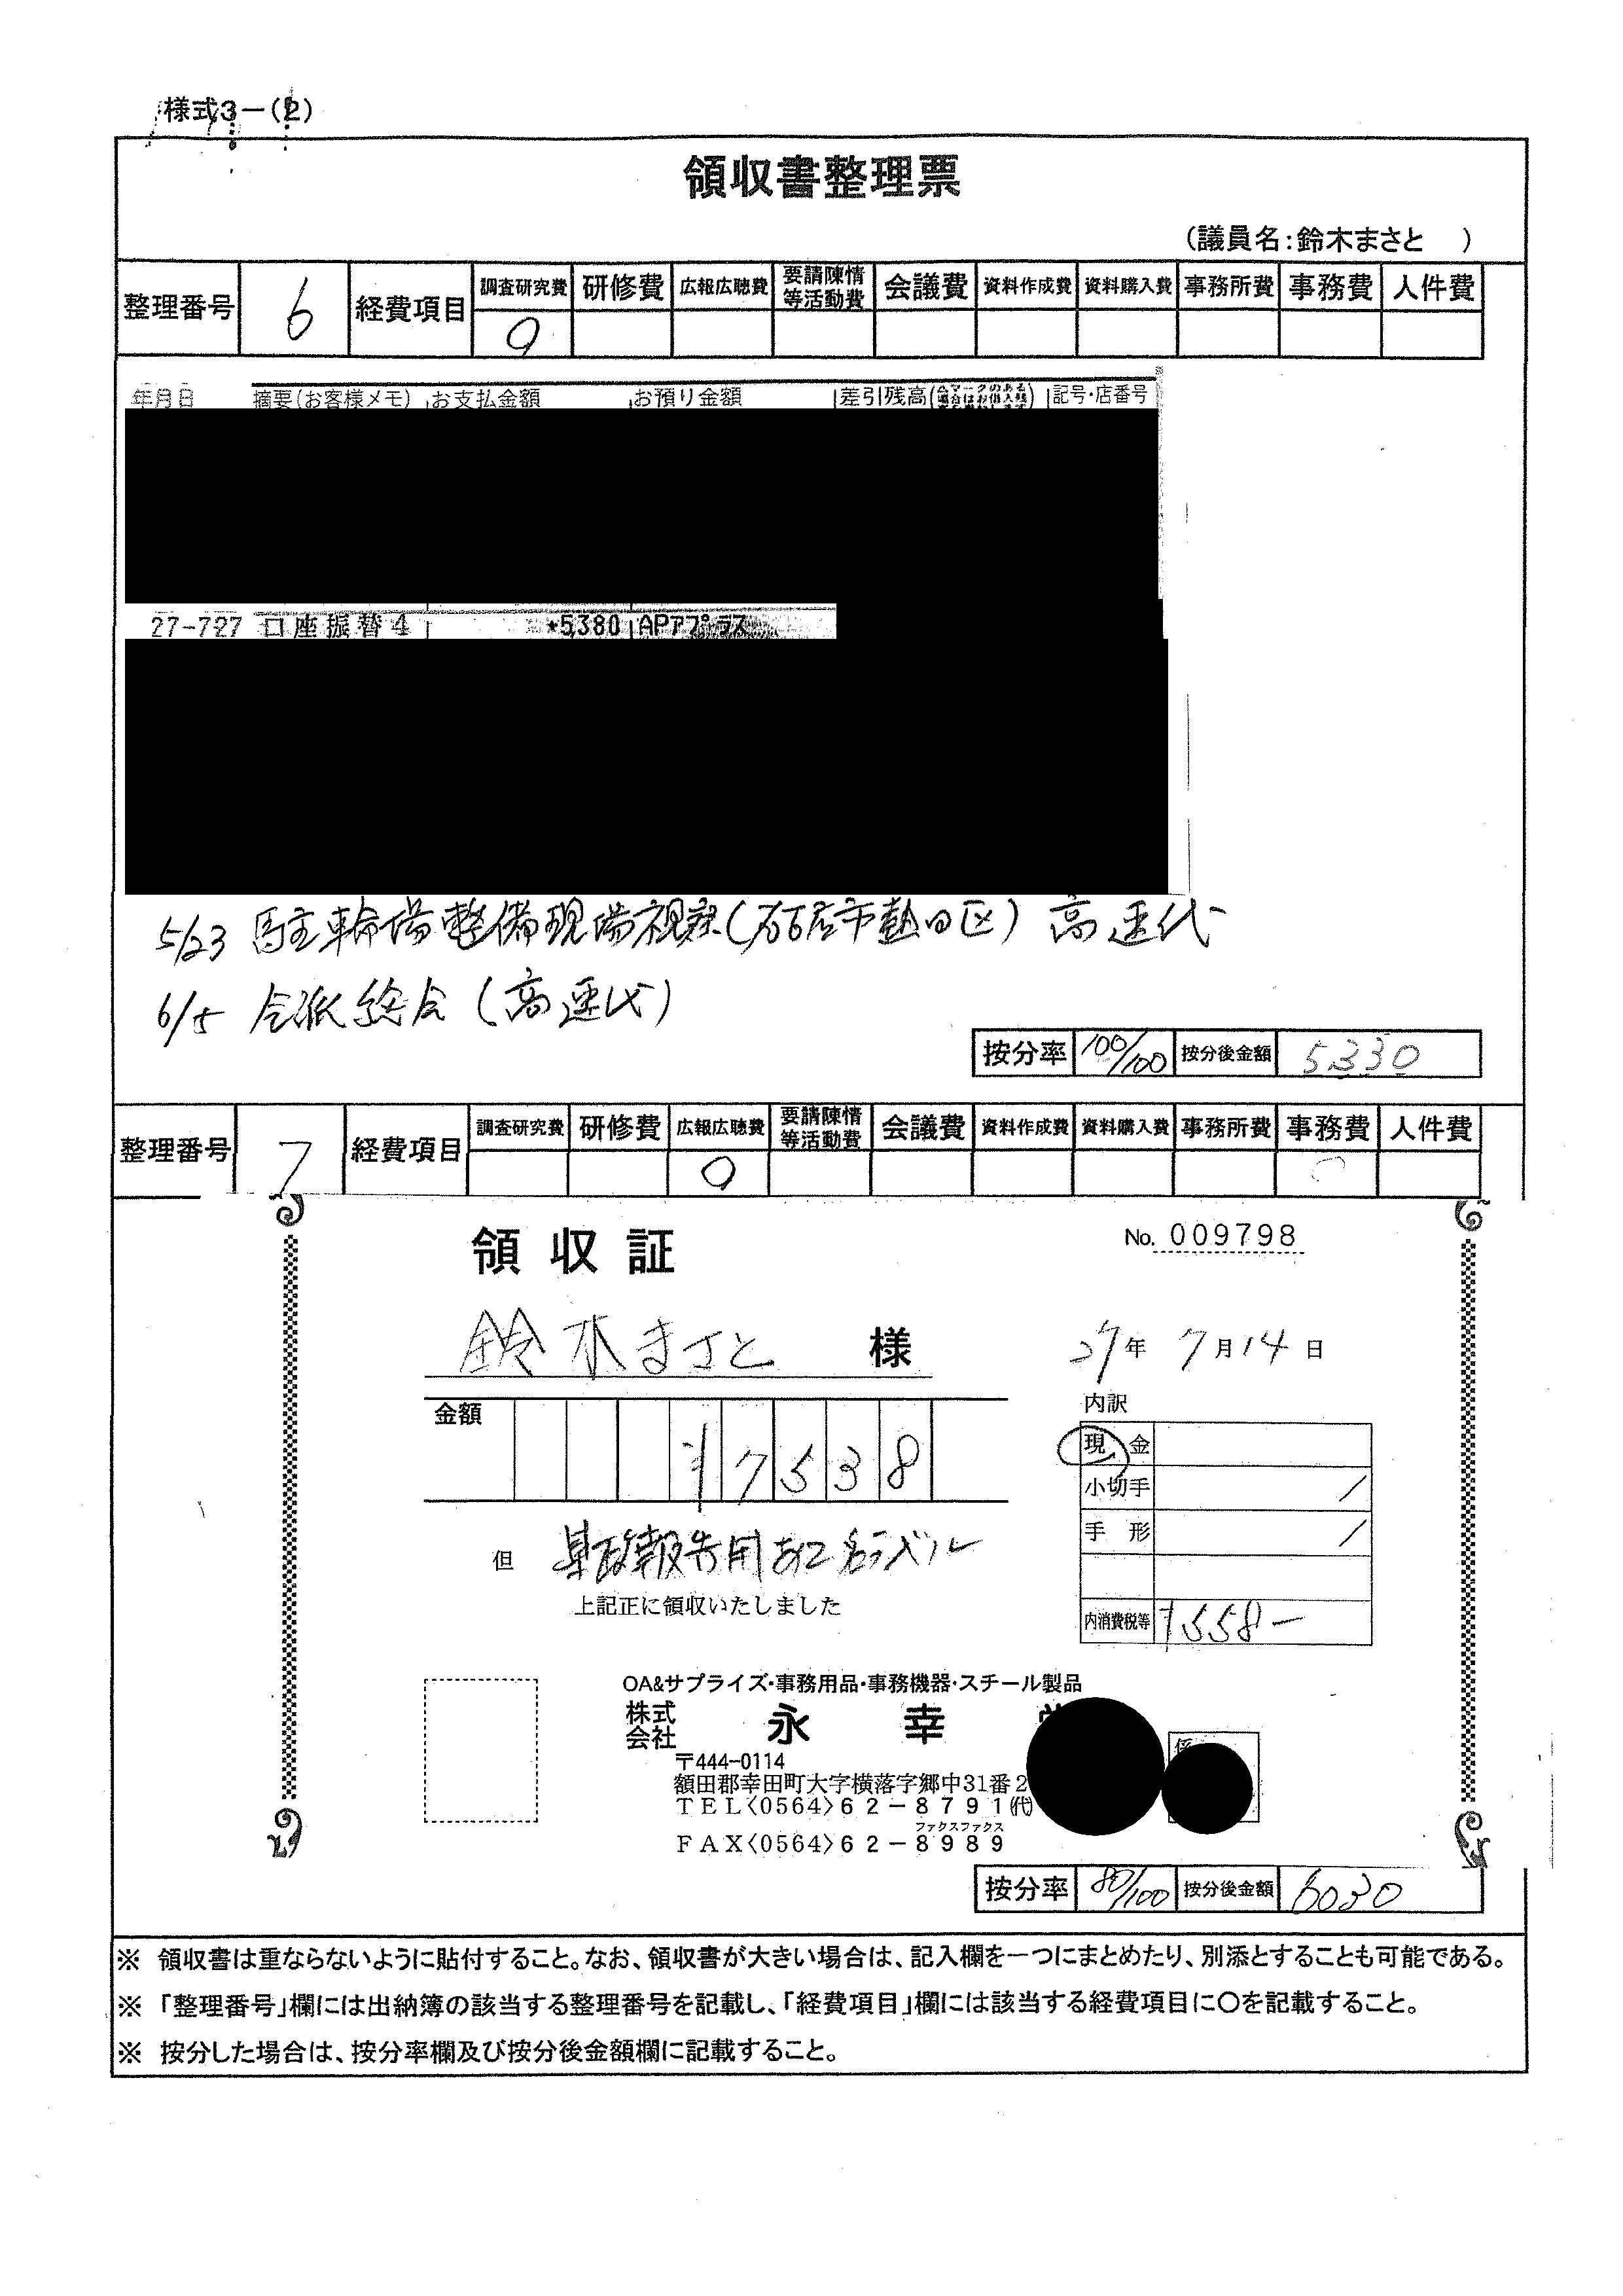 様式3－(2)
領収書整理票
(議員名:鈴木まさと )
整理番号 6 経費項目 調査研究費 研修費 広報広聴費 要請陳情等活動費 会議費 資料作成費 資料購入費 事務所費 事務費 人件費
○
年月日 摘要(お客様メモ) お支払金額 お預り金額 差引残高 記号・店番号
27-727 口座振替4 *5,380 APアプラス
5/23 駐輪場整備現場視察(名古屋市熱田区) 高速代
6/5 会派総会(高速代)
按分率 100/100 按分後金額 5330
整理番号 7 経費項目 調査研究費 研修費 広報広聴費 要請陳情等活動費 会議費 資料作成費 資料購入費 事務所費 事務費 人件費
○
領収証 No. 009798
鈴木まさと 様 27年 7月14日
内訳
金額 ¥7538
現金
小切手
手形
但 県政報告用あて名ラベル
上記正に領収いたしました
内消費税等 ¥558-
OA&サプライズ・事務用品・事務機器・スチール製品
株式会社 永幸
〒444-0114
額田郡幸田町大字横落字郷中31番2
TEL〈0564〉62－8791(代)
ファクスファクス
FAX〈0564〉62－8989
係
按分率 80/100 按分後金額 6030
※ 領収書は重ならないように貼付すること。なお、領収書が大きい場合は、記入欄を一つにまとめたり、別添とすることも可能である。
※ 「整理番号」欄には出納簿の該当する整理番号を記載し、「経費項目」欄には該当する経費項目に○を記載すること。
※ 按分した場合は、按分率欄及び按分後金額欄に記載すること。